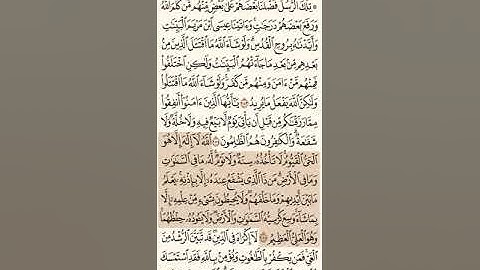 ۞ تِلْكَ ٱلرُّسُلُ فَضَّلْنَا بَعْضَهُمْ عَلَىٰ بَعْضٍ مِّنْهُم مَّن كَلَّمَ ٱللَّهُ
وَرَفَعَ بَعْضَهُمْ دَرَجَٰتٍ وَءَاتَيْنَا عِيسَى ٱبْنَ مَرْيَمَ ٱلْبَيِّنَٰتِ
وَأَيَّدْنَٰهُ بِرُوحِ ٱلْقُدُسِ وَلَوْ شَآءَ ٱللَّهُ مَا ٱقْتَتَلَ ٱلَّذِينَ مِنۢ
بَعْدِهِم مِّنۢ بَعْدِ مَا جَآءَتْهُمُ ٱلْبَيِّنَٰتُ وَلَٰكِنِ ٱخْتَلَفُوا۟
فَمِنْهُم مَّنْ ءَامَنَ وَمِنْهُم مَّن كَفَرَ وَلَوْ شَآءَ ٱللَّهُ مَا ٱقْتَتَلُوا۟
وَلَٰكِنَّ ٱللَّهَ يَفْعَلُ مَا يُرِيدُ ۝٢٥٣ يَٰٓأَيُّهَا ٱلَّذِينَ ءَامَنُوٓا۟ أَنفِقُوا۟
مِمَّا رَزَقْنَٰكُم مِّن قَبْلِ أَن يَأْتِىَ يَوْمٌ لَّا بَيْعٌ فِيهِ وَلَا خُلَّةٌ وَلَا
شَفَٰعَةٌ وَٱلْكَٰفِرُونَ هُمُ ٱلظَّٰلِمُونَ ۝٢٥٤ ٱللَّهُ لَآ إِلَٰهَ إِلَّا هُوَ
ٱلْحَىُّ ٱلْقَيُّومُ لَا تَأْخُذُهُۥ سِنَةٌ وَلَا نَوْمٌ لَّهُۥ مَا فِى ٱلسَّمَٰوَٰتِ
وَمَا فِى ٱلْأَرْضِ مَن ذَا ٱلَّذِى يَشْفَعُ عِندَهُۥٓ إِلَّا بِإِذْنِهِۦ يَعْلَمُ
مَا بَيْنَ أَيْدِيهِمْ وَمَا خَلْفَهُمْ وَلَا يُحِيطُونَ بِشَىْءٍ مِّنْ عِلْمِهِۦٓ إِلَّا
بِمَا شَآءَ وَسِعَ كُرْسِيُّهُ ٱلسَّمَٰوَٰتِ وَٱلْأَرْضَ وَلَا يَـُٔودُهُۥ حِفْظُهُمَا
وَهُوَ ٱلْعَلِىُّ ٱلْعَظِيمُ ۝٢٥٥ لَآ إِكْرَاهَ فِى ٱلدِّينِ قَد تَّبَيَّنَ ٱلرُّشْدُ مِنَ
ٱلْغَىِّ فَمَن يَكْفُرْ بِٱلطَّٰغُوتِ وَيُؤْمِنۢ بِٱللَّهِ فَقَدِ ٱسْتَمْسَكَ